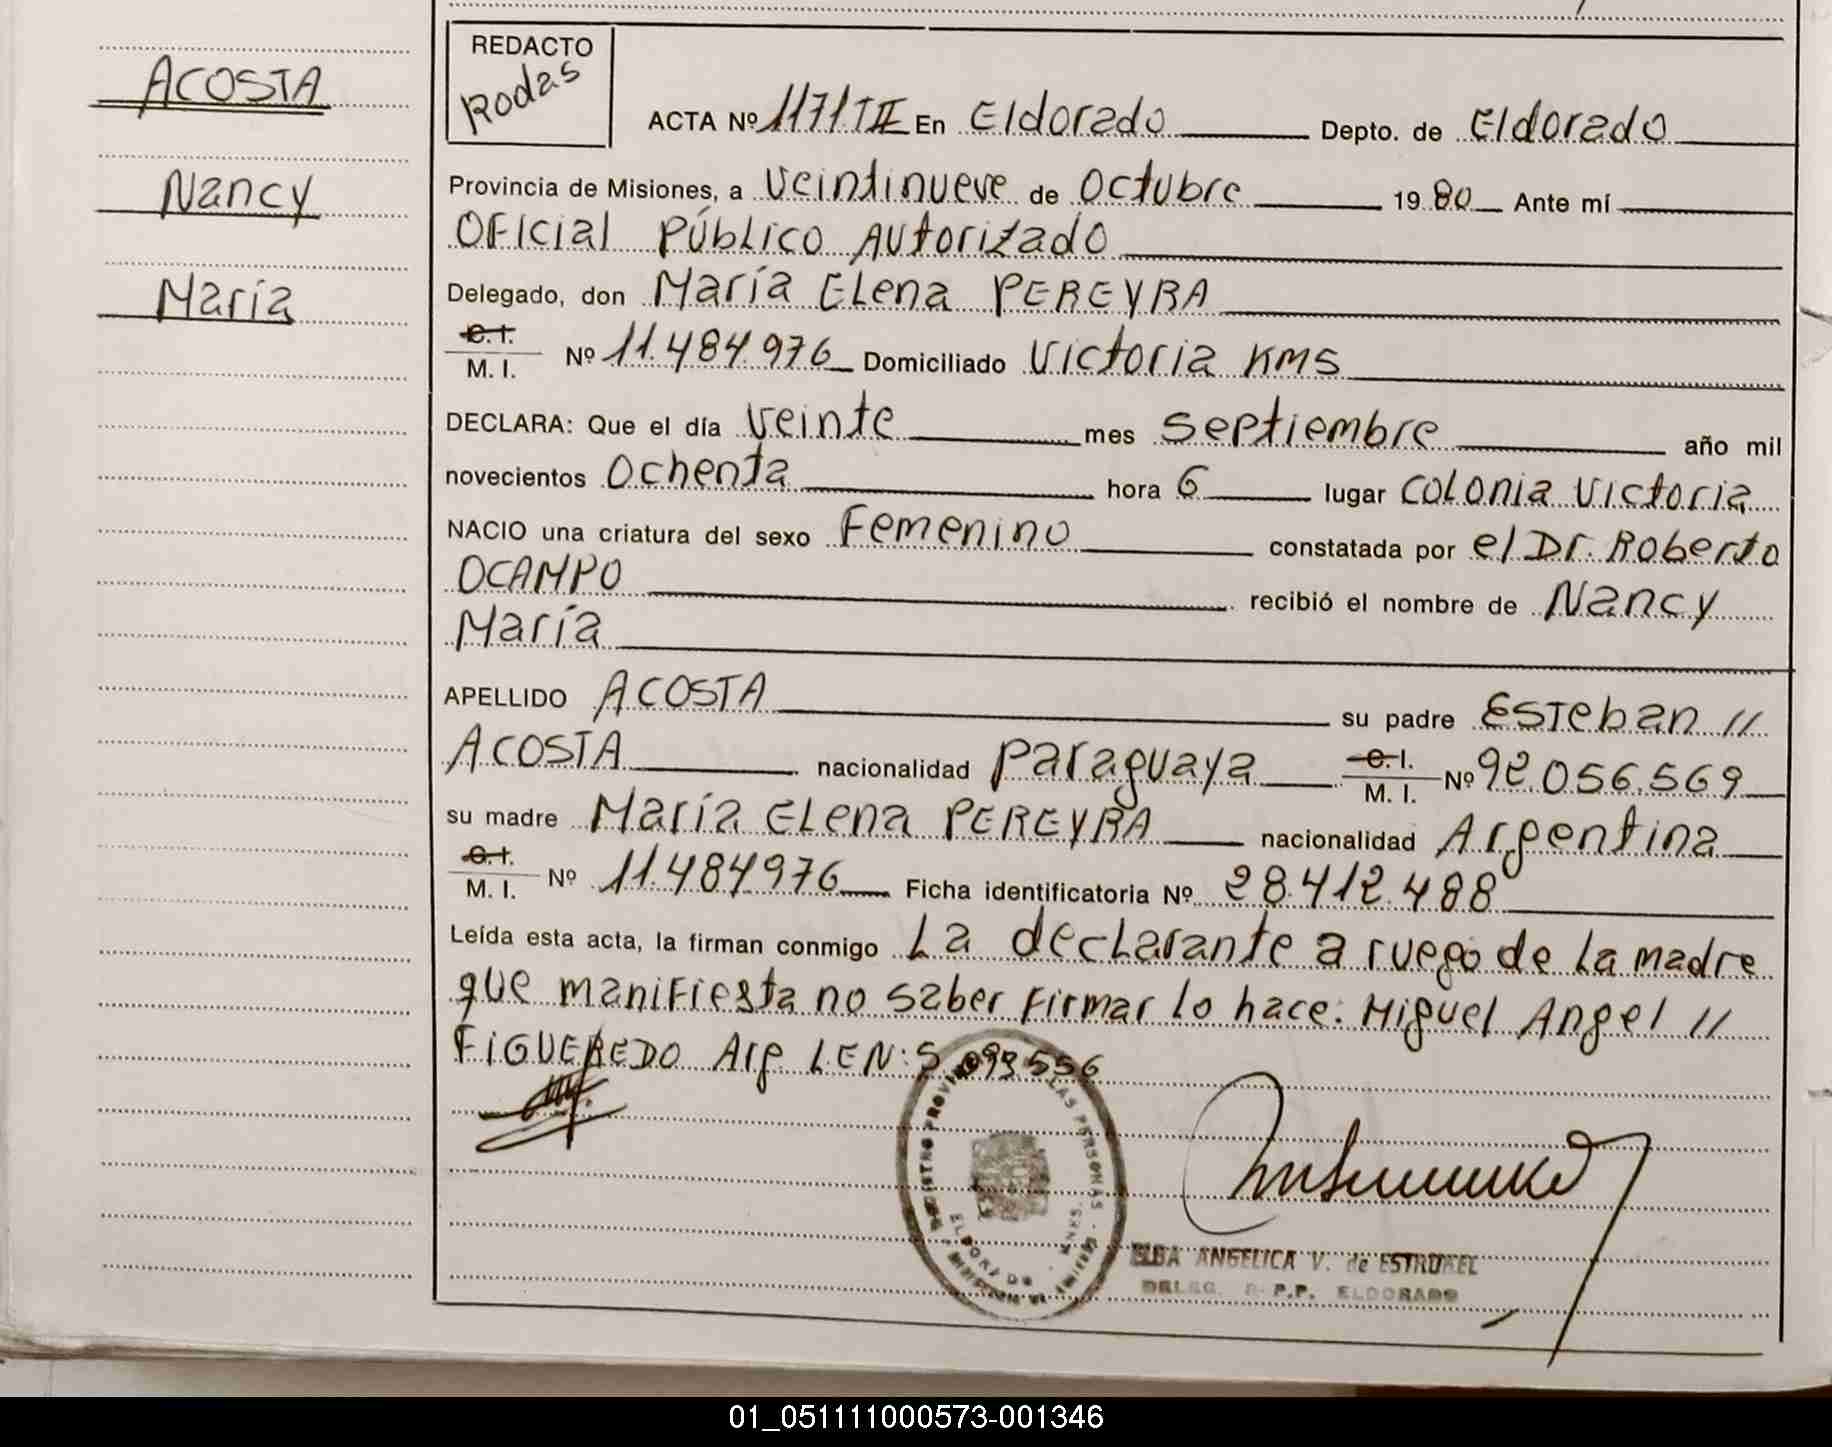 ACOSTA
Nancy
María
REDACTO
Rodas
ACTA Nº 1171 TII En Eldorado Depto. de Eldorado
Provincia de Misiones, a Veintinueve de Octubre 1980 Ante mí
Oficial Público Autorizado
Delegado, don María Elena PEREYRA
C.I.
M. I. Nº 11.484.976 Domiciliado Victoria KM5
DECLARA: Que el día Veinte mes Septiembre año mil
novecientos Ochenta hora 6 lugar Colonia Victoria
NACIO una criatura del sexo Femenino constatada por el Dr. Roberto
OCAMPO recibió el nombre de Nancy
María
APELLIDO ACOSTA su padre Esteban //
ACOSTA nacionalidad Paraguaya C.I. M. I. Nº 92.056.569
su madre María Elena PEREYRA nacionalidad Argentina
C.I.
M. I. Nº 11.484976 Ficha identificatoria Nº 28.412.488
Leída esta acta, la firman conmigo La declarante a ruego de la madre
que manifiesta no saber firmar lo hace: Miguel Angel //
FIGUEREDO Arg. L.E.N: 5.093556
ELBA ANGELICA V. de ESTRUKEL
DELEG. R. P.P. ELDORADO
01_051111000573-001346